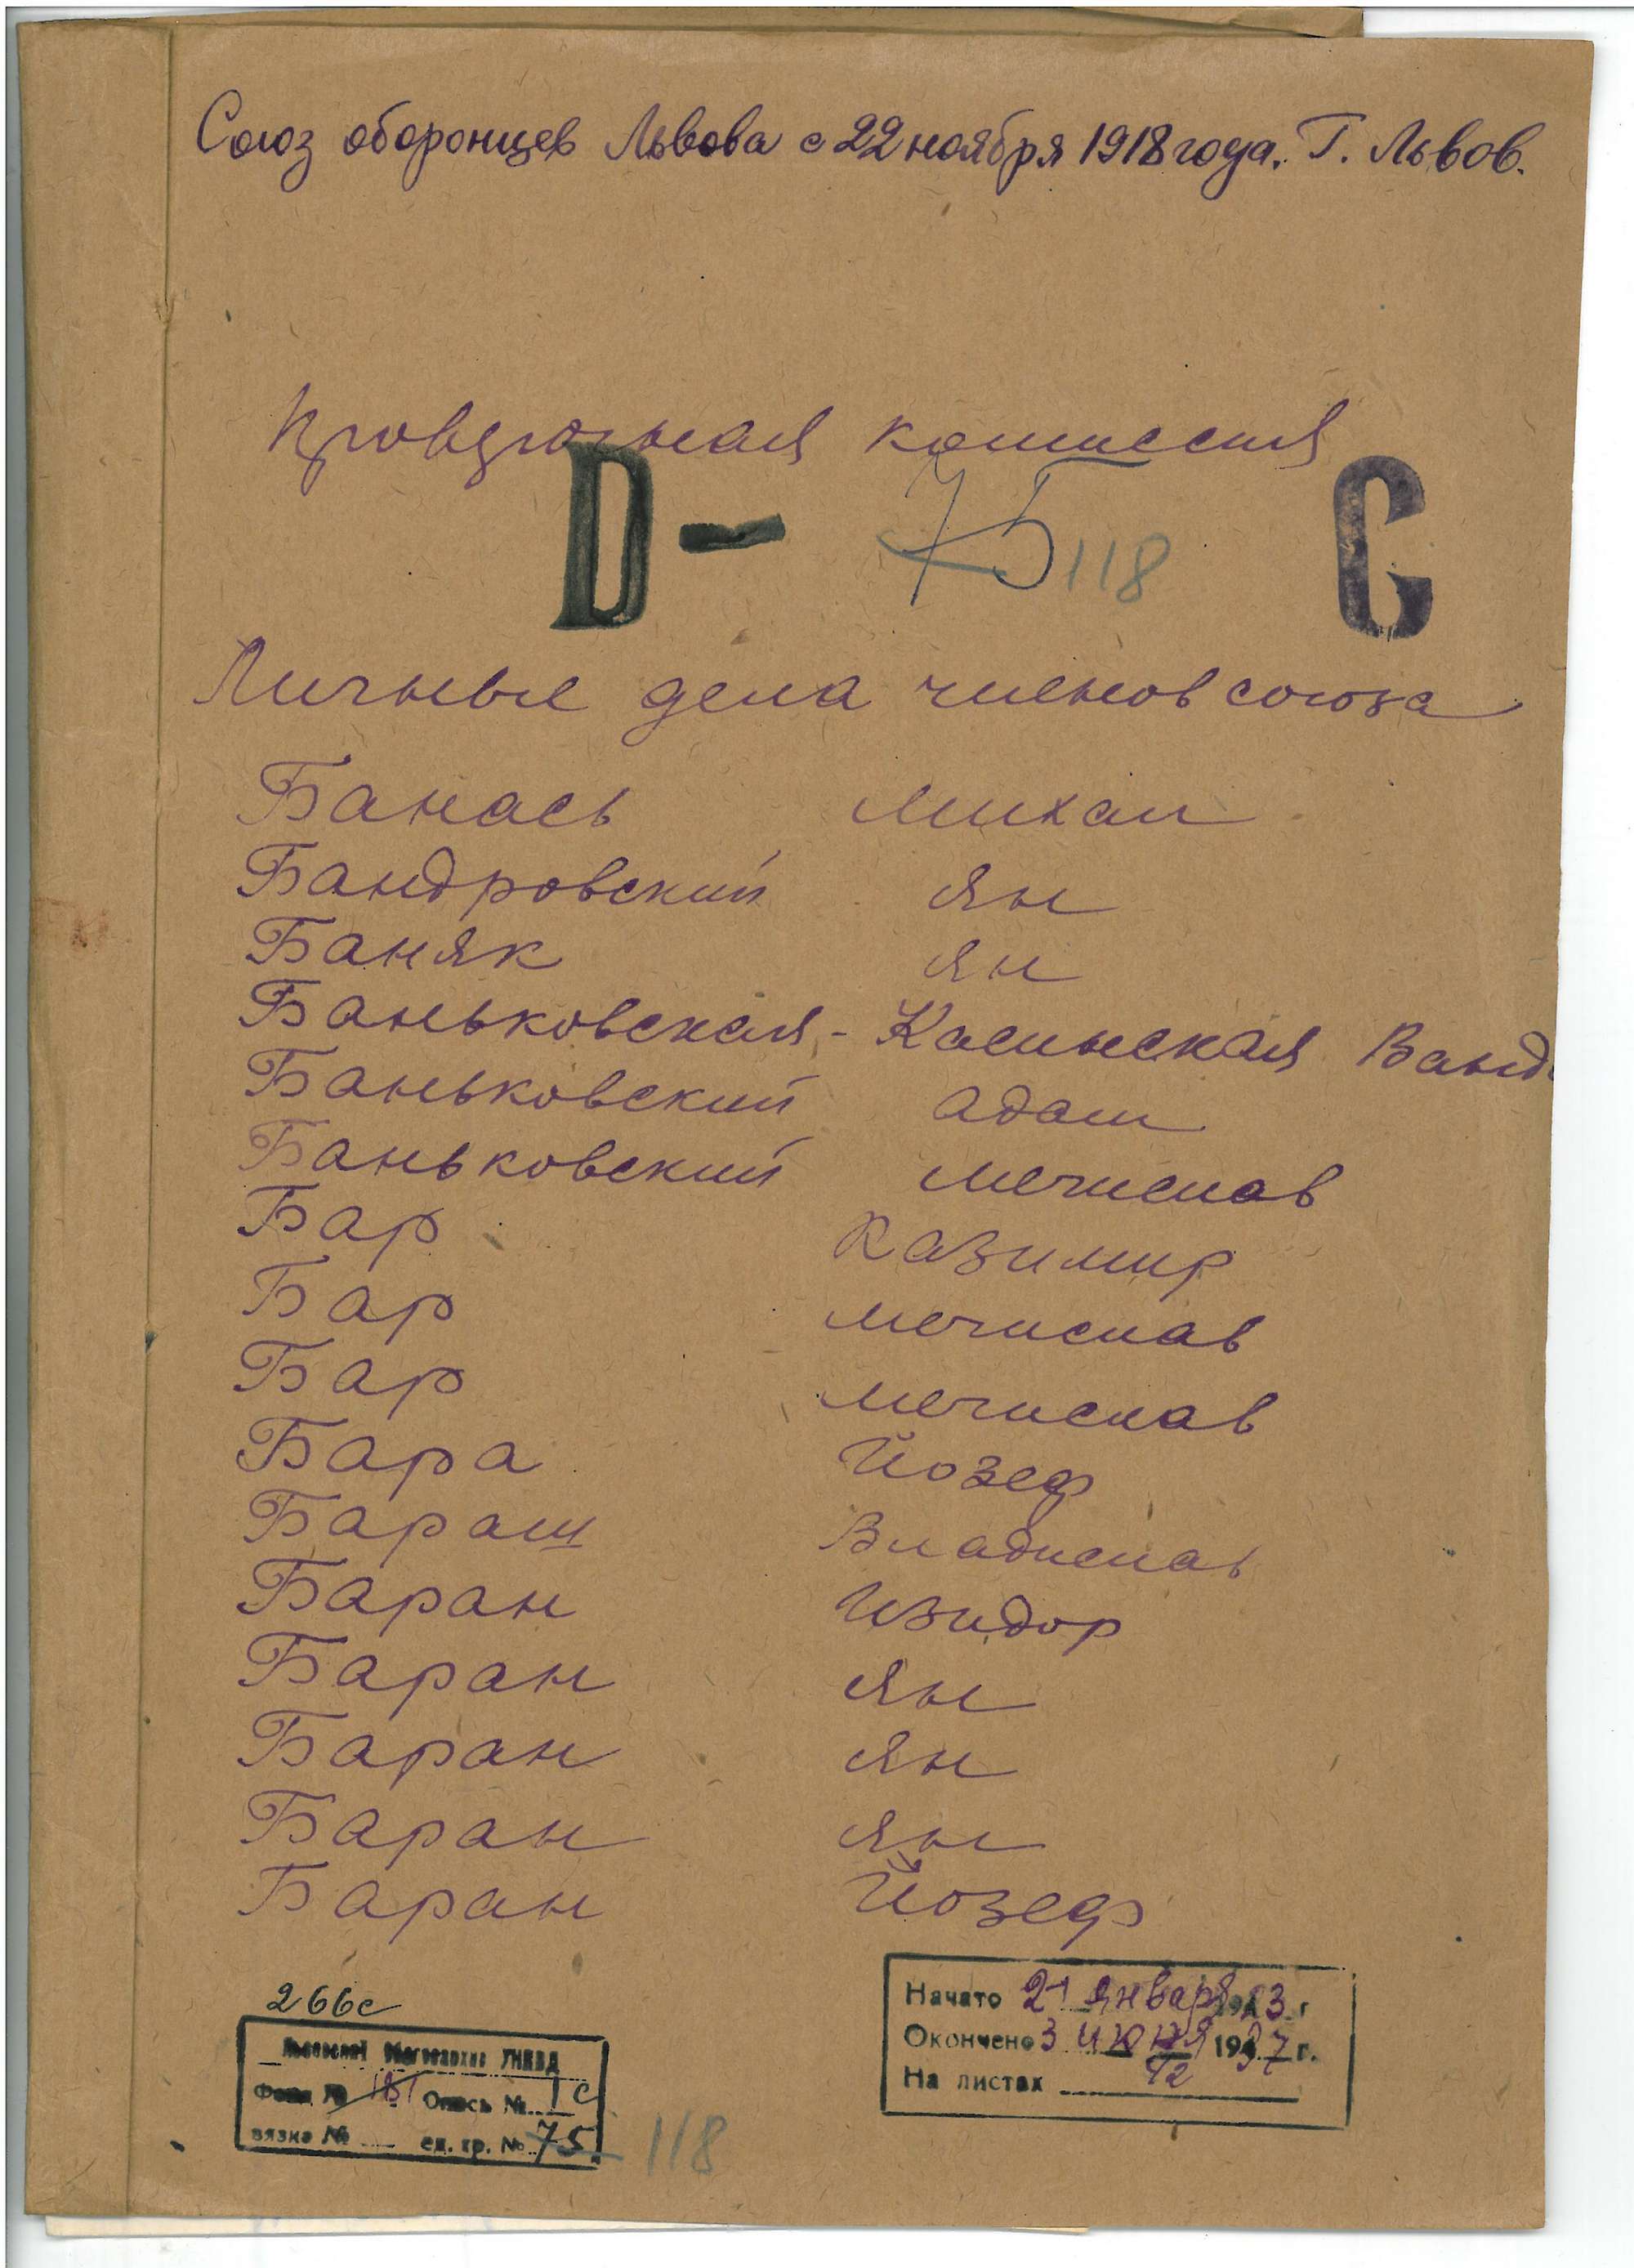 Союз оборонцев Львова с 22 ноября 1918 года. Г. Львов.
комиссия
D - 75 118 С
Личные дела членов союза
Банась Михал
Бандровский Ян
Баняк Ян
Баньковская - Касинская Ванда
Баньковский Адам
Баньковский Мечислав
Бар Казимир
Бар Мечислав
Бар Мечислав
Бара Йозеф
Бараш Владислав
Баран Изидор
Баран Ян
Баран Ян
Баран Ян
Баран Йозеф
266с
Фонд № 181 Опись № 1с
вязка № ед. хр. № 75. 118
Начато 21 января 1923 г
Окончено 3 июня 1937 г.
На листах 42